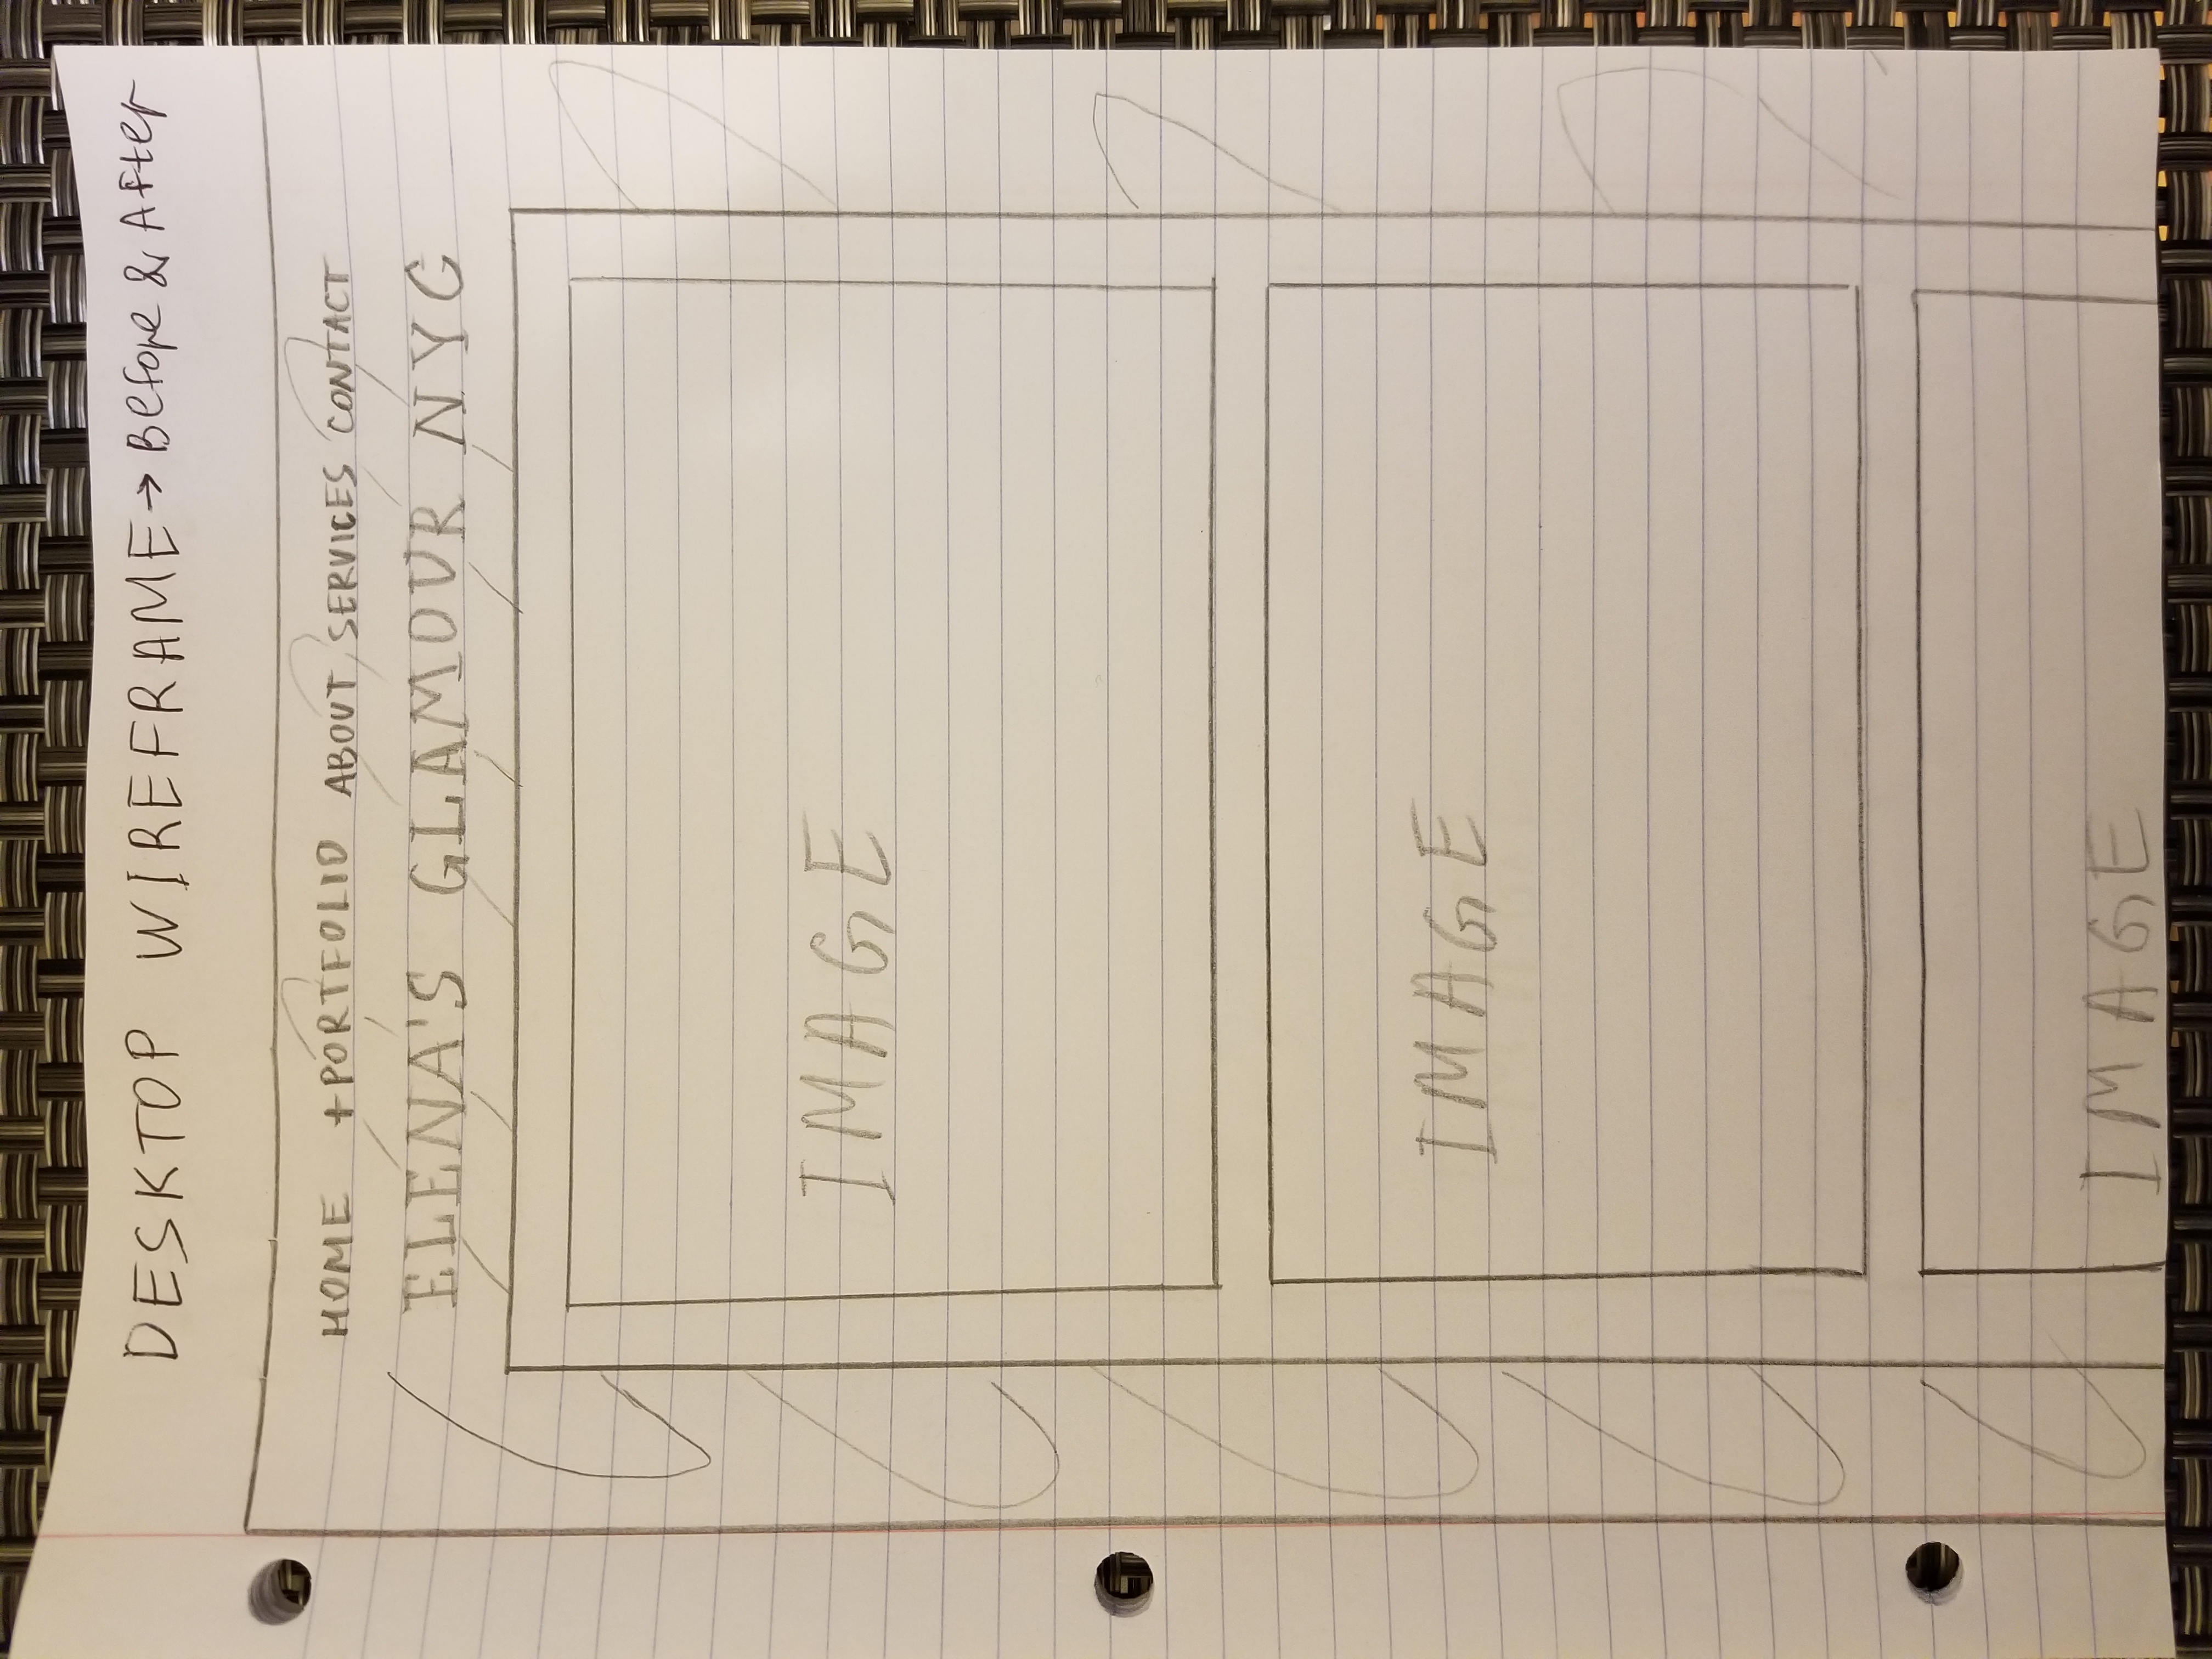 DESKTOP WIREFRAME → Before & After
HOME +PORTFOLIO ABOUT SERVICES CONTACT
ELENA'S GLAMOUR NYC
IMAGE
IMAGE
IMAGE